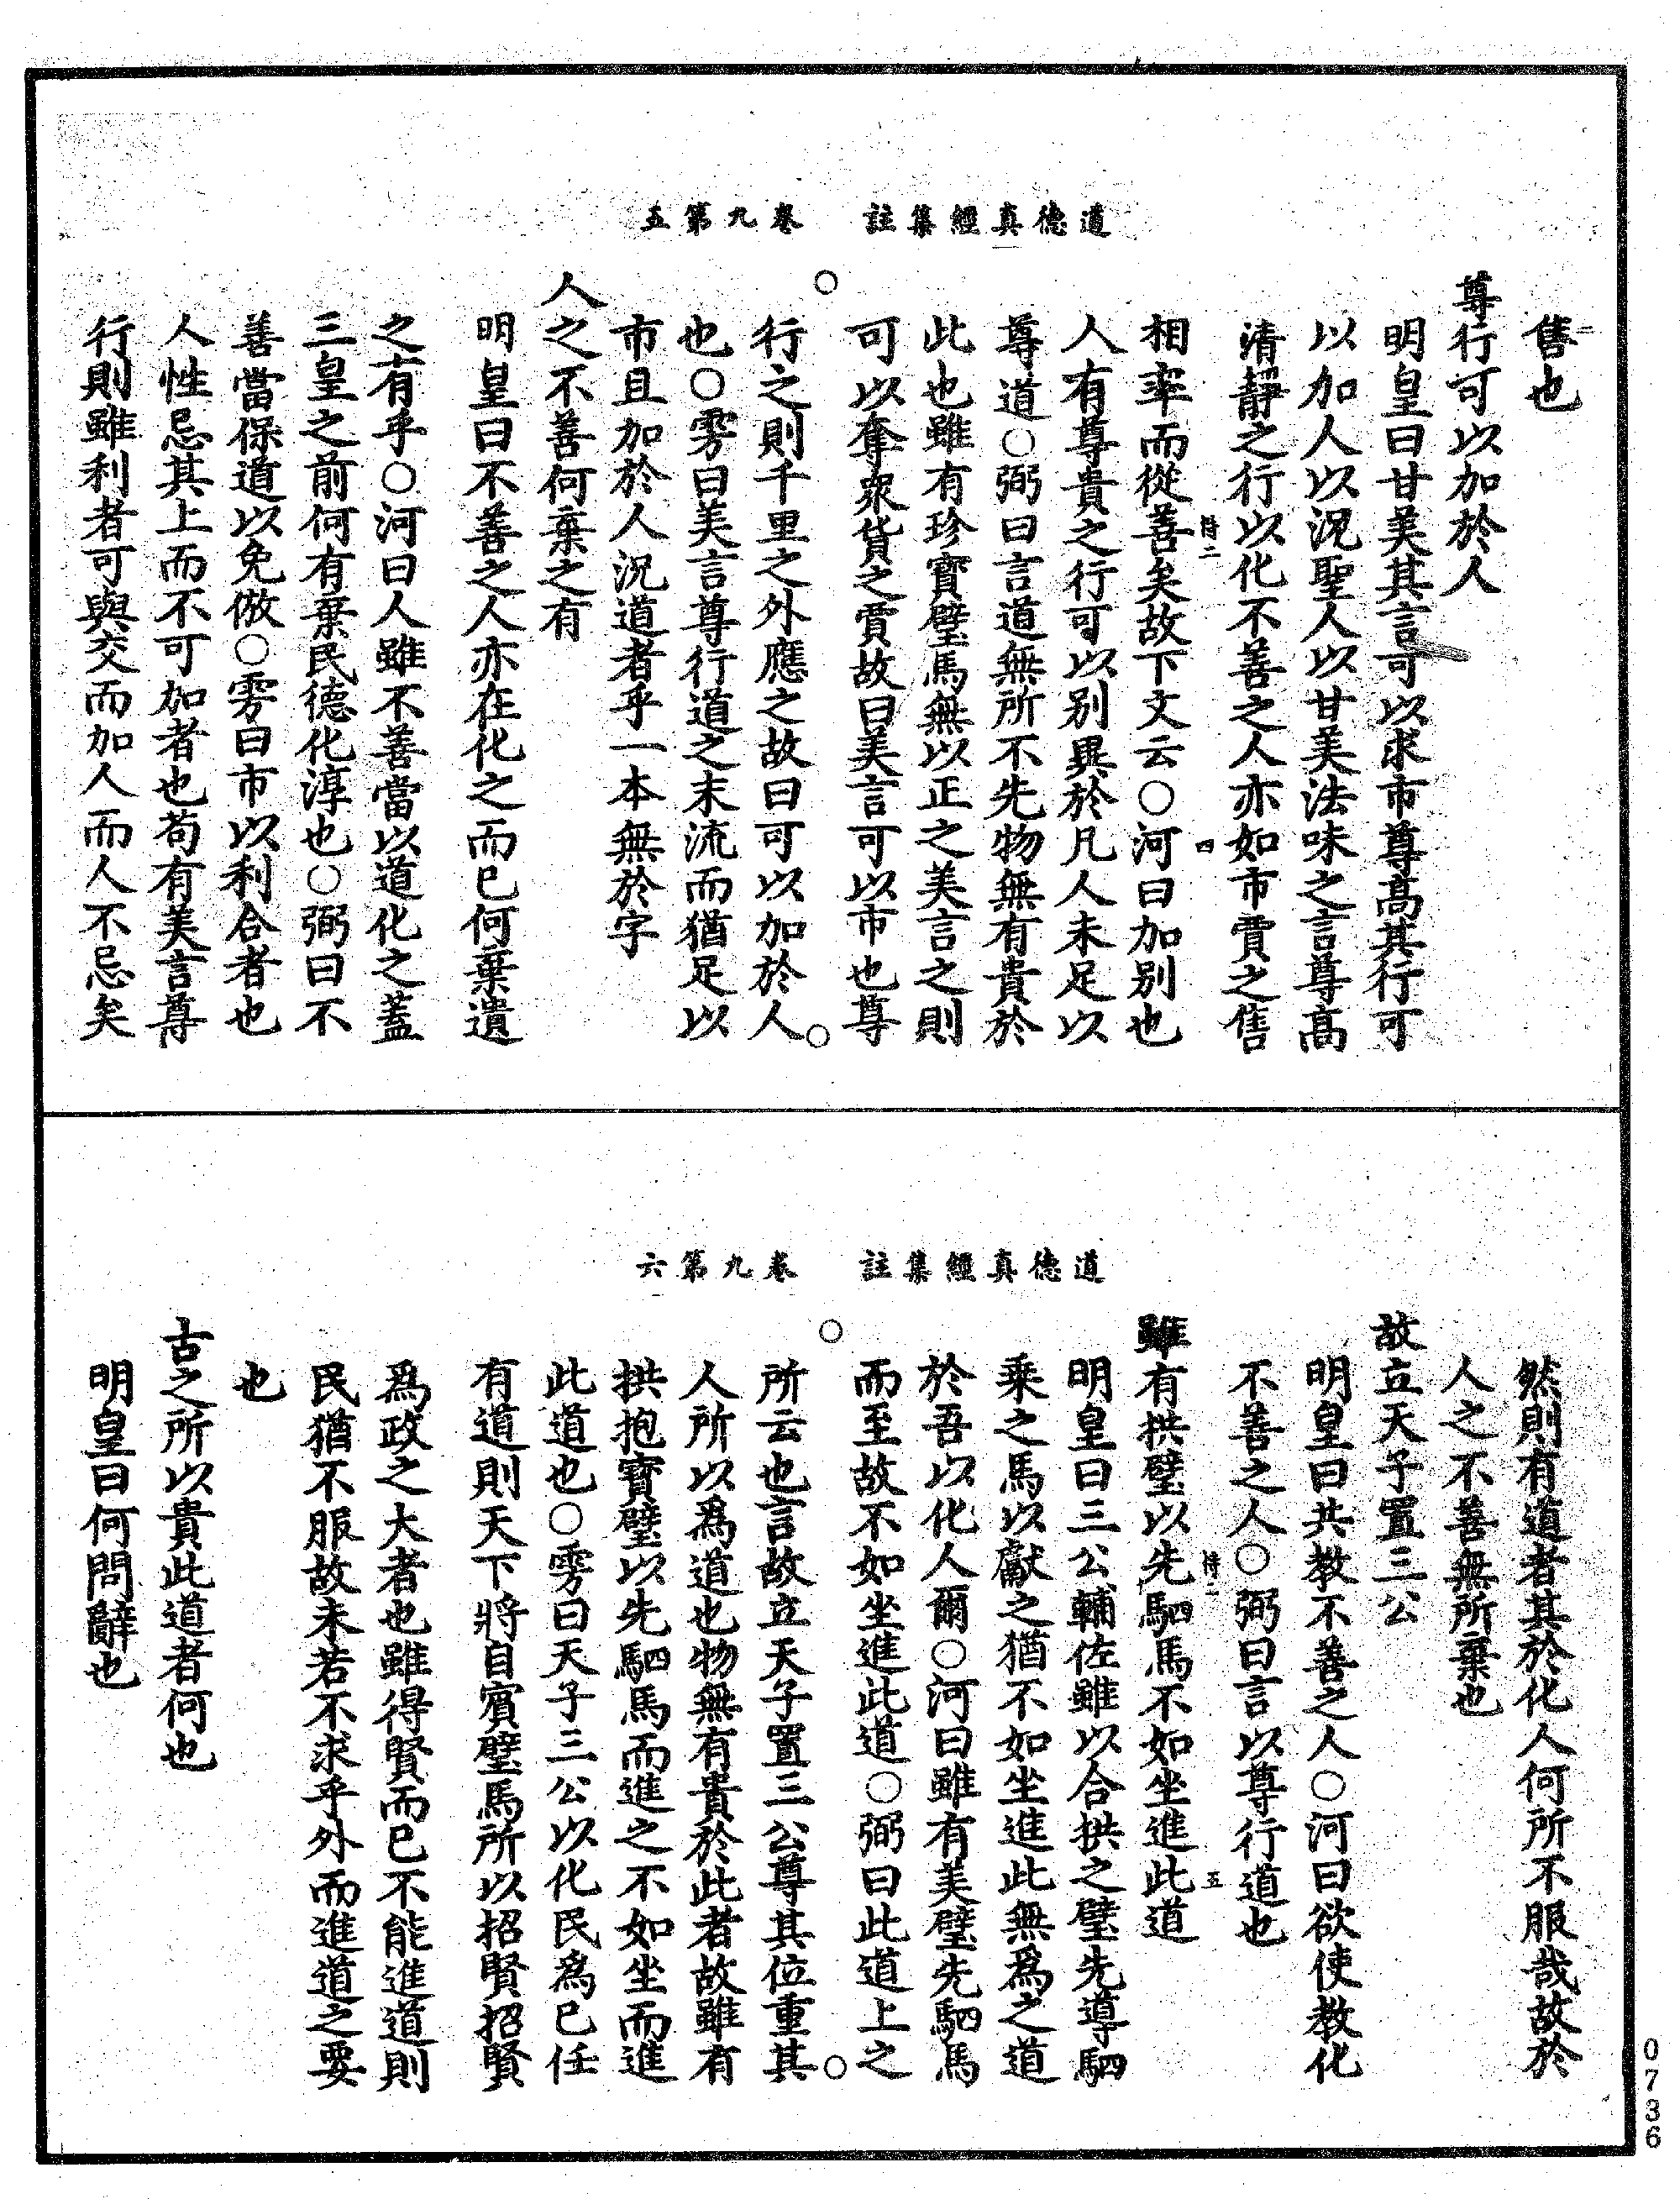 道德真經集註　卷九第五
售也
尊行可以加於人
明皇曰甘美其言可以求市尊高其行可
以加人以況聖人以甘美法味之言尊高
清靜之行以化不善之人亦如市賈之售
相率而從善矣故下文云○河曰加別也
人有尊貴之行可以別異於凡人未足以
尊道○弼曰言道無所不先物無有貴於
此也雖有珍寶璧馬無以正之美言之則
可以奪衆貨之賈故曰美言可以市也尊
行之則千里之外應之故曰可以加於人
也○雱曰美言尊行道之末流而猶足以
市且加於人況道者乎一本無於字
人之不善何棄之有
明皇曰不善之人亦在化之而已何棄遺
之有乎○河曰人雖不善當以道化之蓋
三皇之前何有棄民德化淳也○弼曰不
善當保道以免倣○雱曰市以利合者也
人性忌其上而不可加者也苟有美言尊
行則雖利者可與交而加人而人不忌矣
道德真經集註　卷九第六
然則有道者其於化人何所不服哉故於
人之不善無所棄也
故立天子置三公
明皇曰共教不善之人○河曰欲使教化
不善之人○弼曰言以尊行道也
雖有拱璧以先駟馬不如坐進此道
明皇曰三公輔佐雖以合拱之璧先導駟
乘之馬以獻之猶不如坐進此無爲之道
於吾以化人爾○河曰雖有美璧先駟馬
而至故不如坐進此道○弼曰此道上之
所云也言故立天子置三公尊其位重其
人所以爲道也物無有貴於此者故雖有
拱抱寶璧以先駟馬而進之不如坐而進
此道也○雱曰天子三公以化民爲已任
有道則天下將自賓璧馬所以招賢招賢
爲政之大者也雖得賢而已不能進道則
民猶不服故未若不求乎外而進道之要
也
古之所以貴此道者何也
明皇曰何問辭也
0736